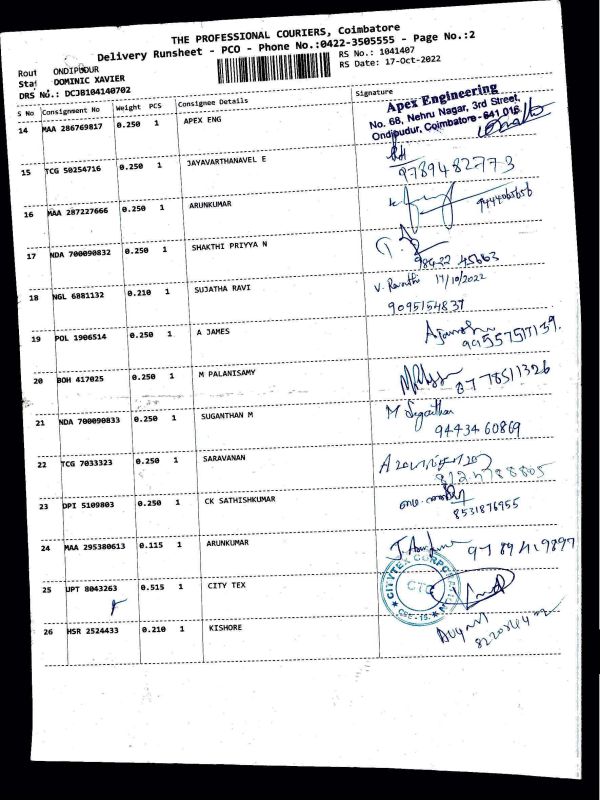 THE PROFESSIONAL COURIERS, Coimbatore
Delivery Runsheet - PCO - Phone No.:0422-3505555 - Page No.:2
Rout ONDIPUDUR
Staf DOMINIC XAVIER
DRS No.: DCJB104140702
RS No.: 1041407
RS Date: 17-Oct-2022
S No Consignment No Weight PCS Consignee Details Signature
14 MAA 286769817 0.250 1 APEX ENG
Apex Engineering
No. 68, Nehru Nagar, 3rd Street,
Ondipudur, Coimbatore - 641 016.
15 TCG 50254716 0.250 1 JAYAVARTHANAVEL E
9789482773
16 MAA 287227666 0.250 1 ARUNKUMAR
9444065656
17 NDA 700090832 0.250 1 SHAKTHI PRIYYA N
98422 45663
18 NGL 6881132 0.210 1 SUJATHA RAVI
V. Revathi 17/10/2022
9095154837
19 POL 1906514 0.250 1 A JAMES
20 BOH 417025 0.250 1 M PALANISAMY
21 NDA 700090833 0.250 1 SUGANTHAN M
M Suganthan
9443460869
22 TCG 7033323 0.250 1 SARAVANAN
23 DPI 5109803 0.250 1 CK SATHISHKUMAR
8531876955
24 MAA 295380613 0.115 1 ARUNKUMAR
25 UPT 8043263 0.515 1 CITY TEX
CTC
26 HSR 2524433 0.210 1 KISHORE